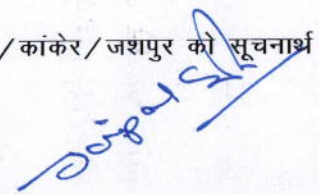 /कांकेर/जशपुर को सूचनार्थ